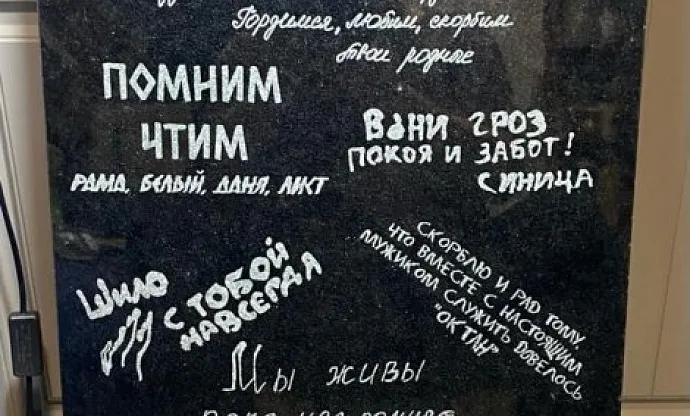 Гордимся, любим, скорбим
твои родные
ПОМНИМ
ЧТИМ
РАМА, БЕЛЫЙ, ДАНЯ, ЛИКТ
ВАНИ ГРОЗ
ПОКОЯ И ЗАБОТ!
СИНИЦА
ШИЛО
С ТОБОЙ
НАВСЕГДА
СКОРБЛЮ И РАД ТОМУ,
ЧТО ВМЕСТЕ С НАСТОЯЩИМ
МУЖИКОМ СЛУЖИТЬ ДОВЕЛОСЬ
"ОКТАН"
Мы живы